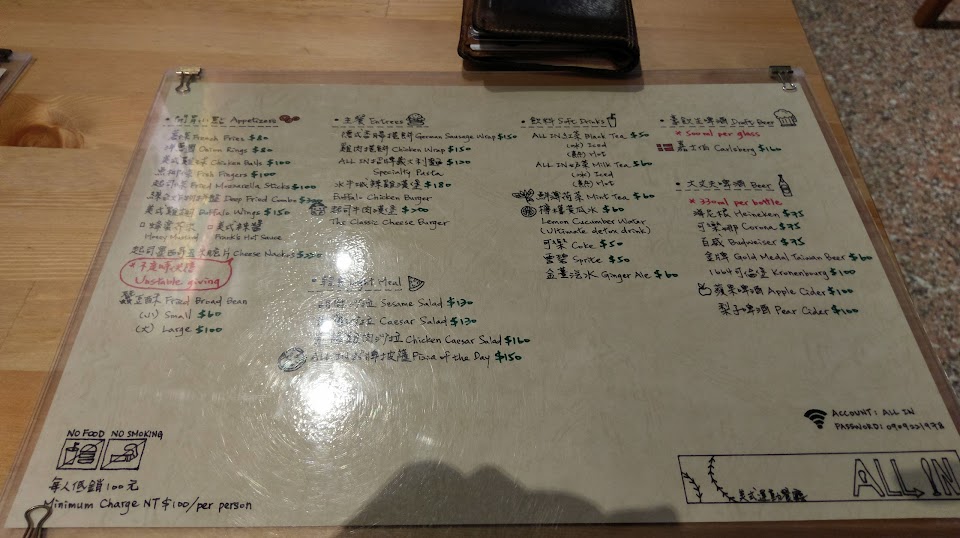 Appetizers
French Fries $80
Onion Rings $80
Chicken Balls $100
Fish Fingers $100
Fried Mozzarella Sticks $100
Deep Fried Combo
Buffalo Wings $150
Honey Mustard Frank's Hot Sauce
Cheese Nachos
Unstable giving
Fried Broad Bean
(小) Small $60
(大) Large $100
主餐 Entrees
德式香腸捲餅 German Sausage Wrap $150
雞肉捲餅 Chicken Wrap $150
ALL IN招牌義大利麵
Specialty Pasta
水牛城辣雞漢堡 $180
Buffalo Chicken Burger
起司牛肉漢堡 $200
The Classic Cheese Burger
Light Meal
Sesame Salad $130
Caesar Salad $130
Chicken Caesar Salad $160
ALL IN 招牌披薩 Pizza of the Day $150
飲料 Soft Drinks
ALL IN 紅茶 Black Tea $50
(冰) Iced
(熱) Hot
ALL IN 奶茶 Milk Tea $60
(冰) Iced
(熱) Hot
鮮薄荷茶 Mint Tea $60
檸檬黃瓜水 $60
Lemon Cucumber Water
(Ultimate detox drink)
可樂 Coke $50
雪碧 Sprite $50
金薑汽水 Ginger Ale $60
暢飲生啤酒 Draft Beer
* 500ml per glass
嘉士伯 Carlsberg $160
大丈夫啤酒 Beer
* 330ml per bottle
海尼根 Heineken $75
可樂娜 Corona $75
百威 Budweiser $75
金牌 Gold Medal Taiwan Beer $60
1664可倫堡 Kronenburg $100
蘋果啤酒 Apple Cider $100
梨子啤酒 Pear Cider $100
ACCOUNT: ALL IN
PASSWORD: 0909221978
NO FOOD NO SMOKING
每人低銷100元
Minimum Charge NT$100/per person
美式運動餐廳
ALL IN